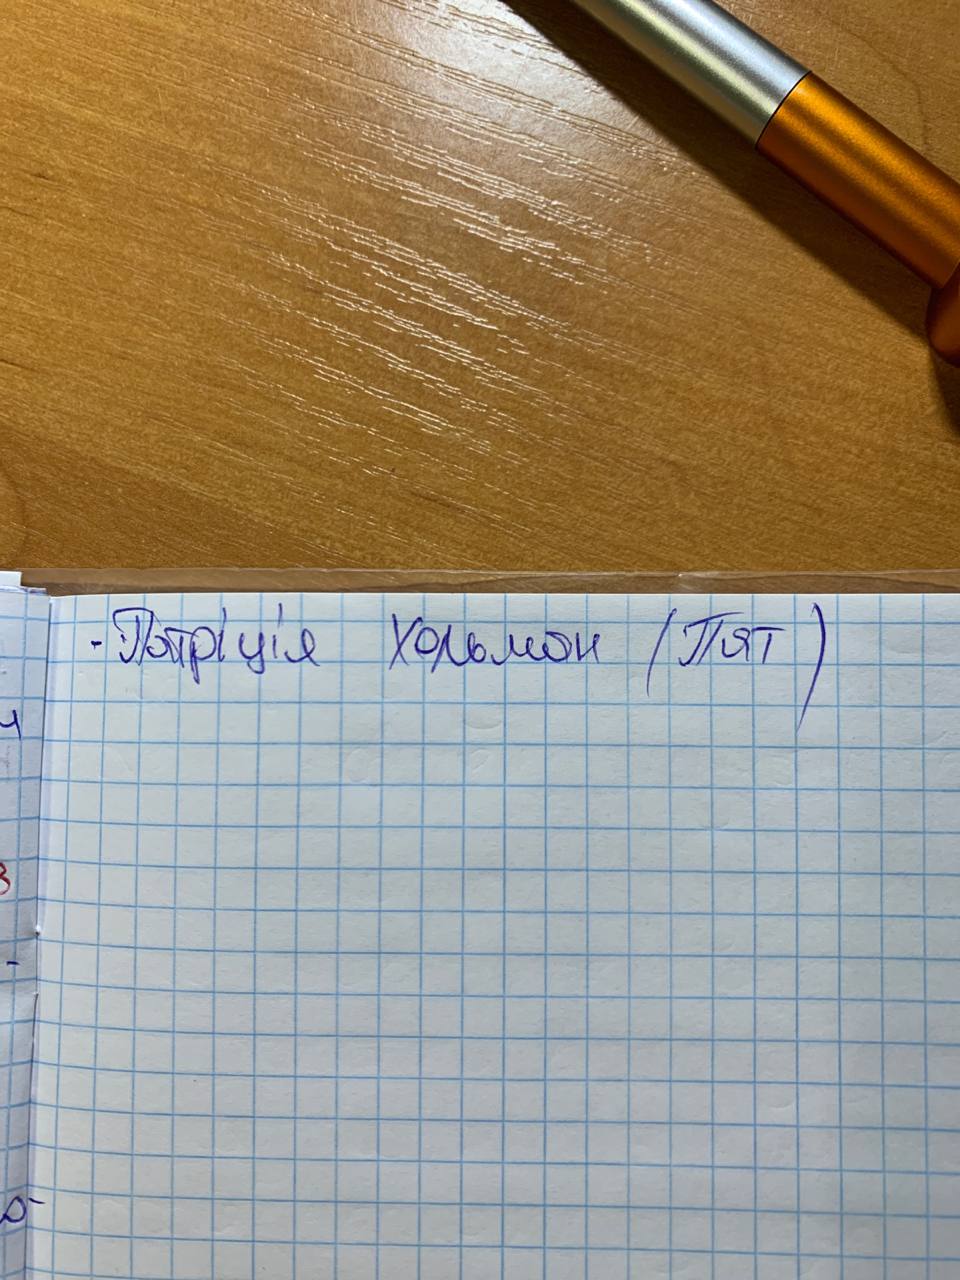 - Патріція Хольман (Пят)